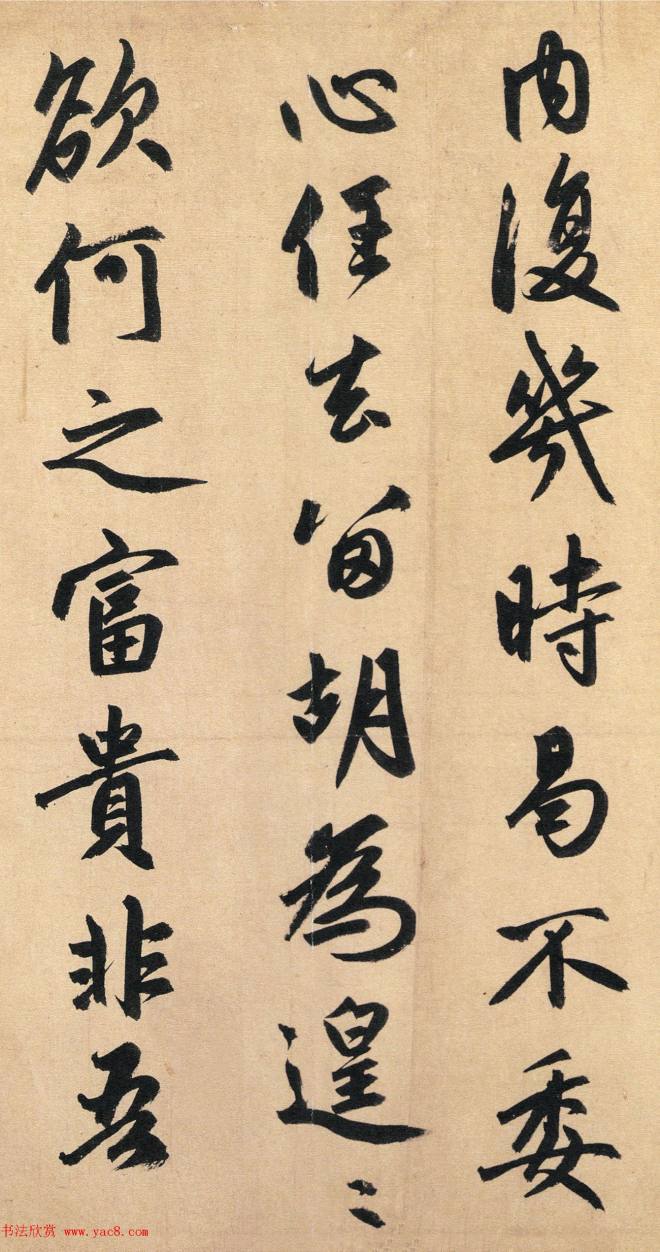 内復幾時曷不委
心任去留胡為遑〻
欲何之富貴非吾
书法欣赏 www.yac8.com